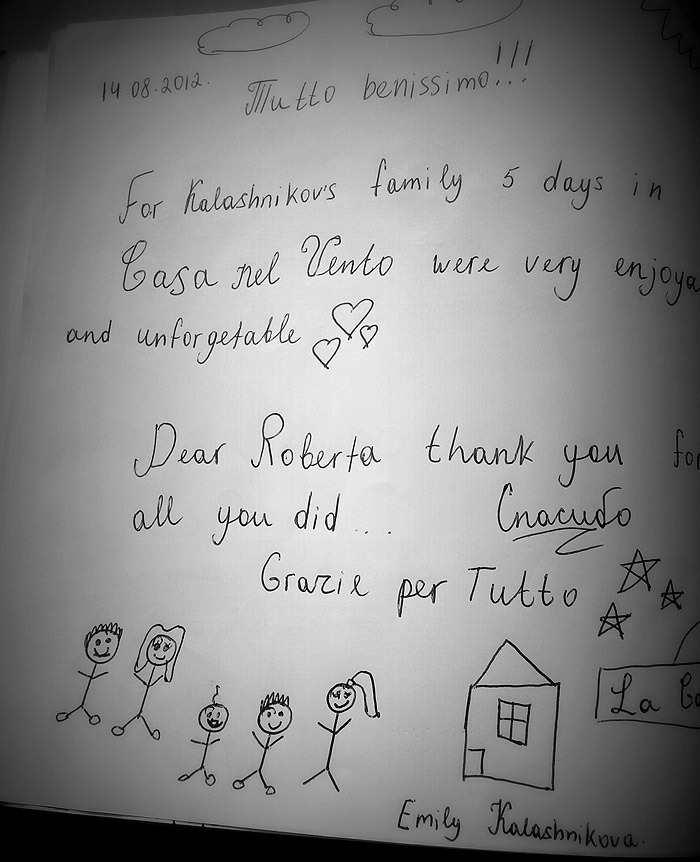 14 08.2012.
Tutto benissimo!!!
For Kalashnikov's family 5 days in
Casa nel Vento were very enjoya
and unforgetable
Dear Roberta thank you for
all you did...
Спасибо
Grazie per Tutto
La Ca
Emily Kalashnikova.